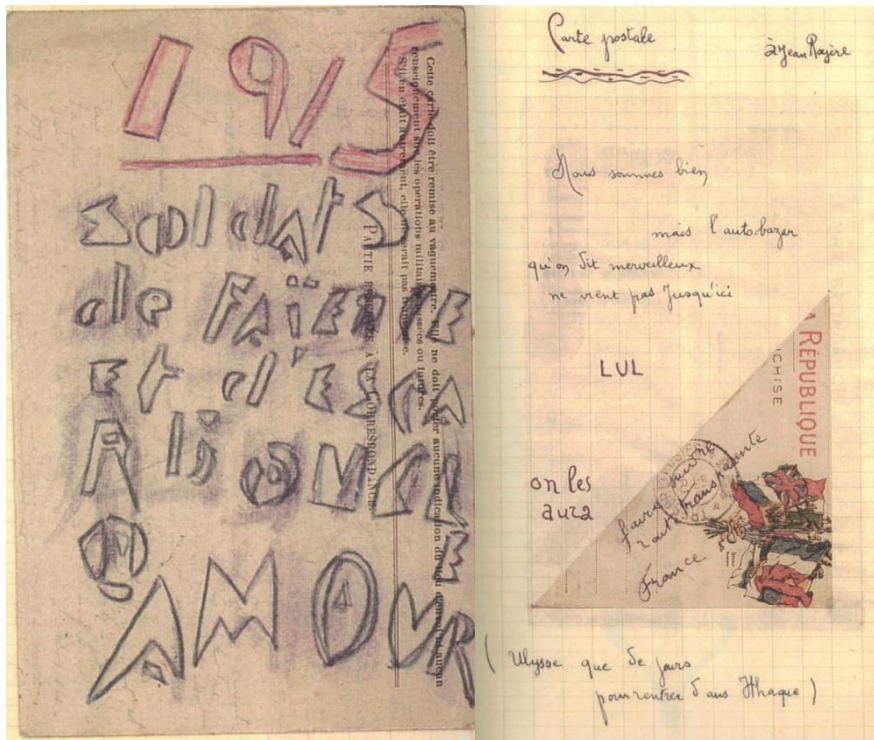 1915
Soldats
de FAÏENCE
Et d'ESCA
RBOUCL
E
Ô
AMOUR
Cette carte doit être remise au vaguemestre. Elle ne doit porter aucune indication du lieu d'envoi ni aucun
renseignement sur les opérations militaires passées ou futures.
S'il en était autrement, elle ne serait pas transmise.
PARTIE RÉSERVÉE À LA CORRESPONDANCE
Carte postale
à Jean Royère
Nous sommes bien
mais l'auto-bazar
qu'on dit merveilleux
ne vient pas jusqu'ici
LUL
on les
aura
RÉPUBLIQUE
CHISE
faire suivre
transparente
France
(Ulysse que de jours
pour rentrer dans Ithaque)